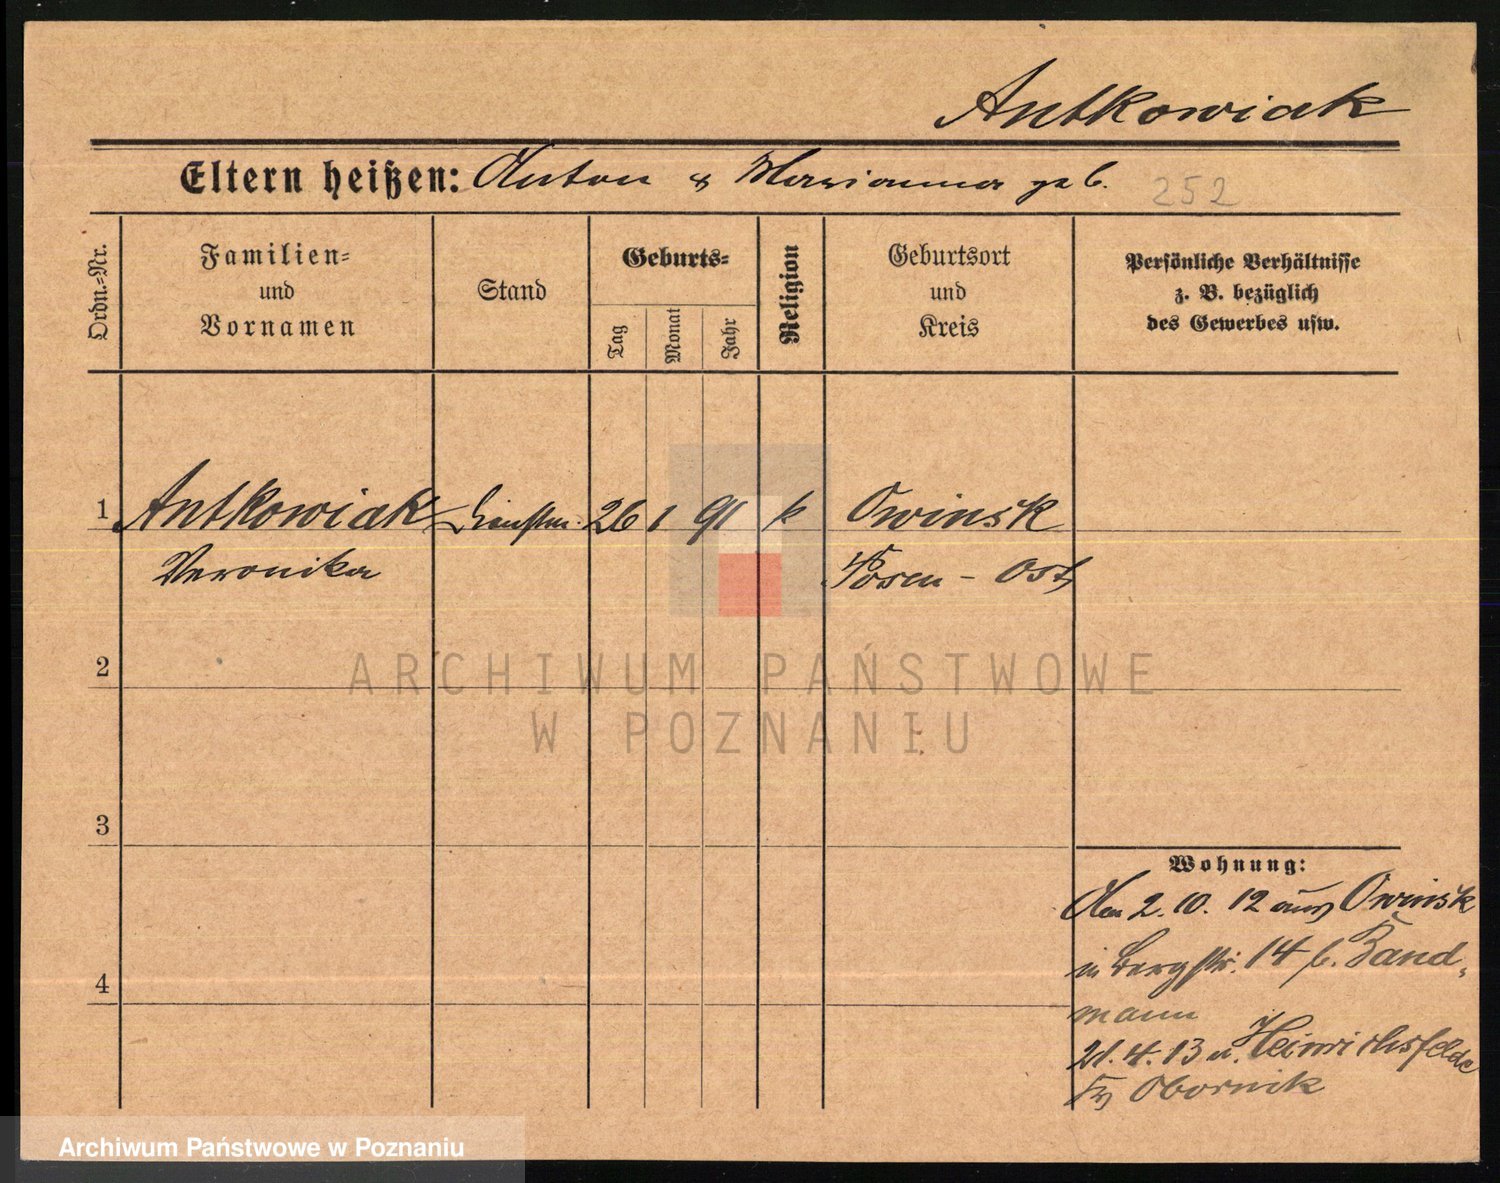 Antkowiak
Eltern heißen: Anton & Marianna geb. 252
Ordn.-Nr.
Familien- und Vornamen
Stand
Geburts-
Tag
Monat
Jahr
Religion
Geburtsort und Kreis
Persönliche Verhältnisse
z. B. bezüglich
des Gewerbes usw.
1 Antkowiak 26 1 91 k Owinsk
Veronika Posen - Ost
2
ARCHIWUM PAŃSTWOWE
W POZNANIU
3
Wohnung:
Den 2. 10. 12 aus Owinsk
in Bergstr. 14 b. Band-
4
mann
21. 4. 13 n. Heinrichsfelde
Obornik
Archiwum Państwowe w Poznaniu